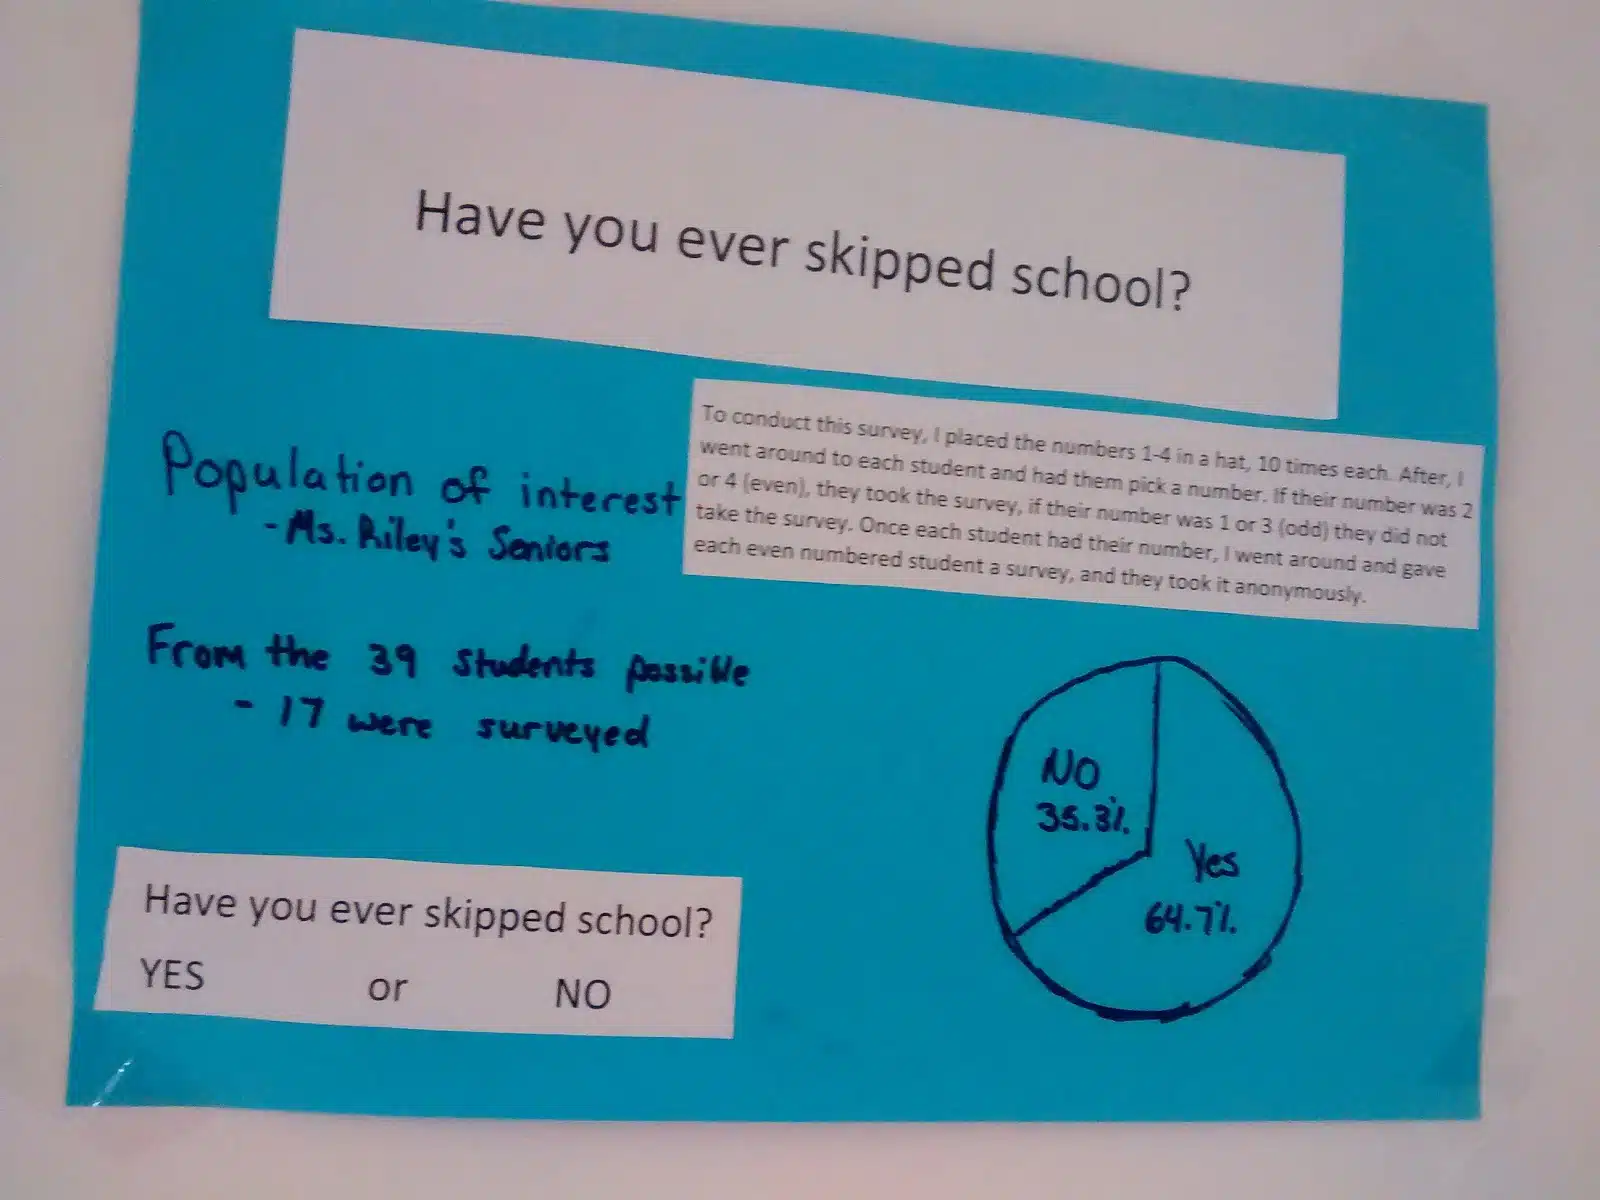 Have you ever skipped school?
Population of interest
- Ms. Riley's Seniors
To conduct this survey, I placed the numbers 1-4 in a hat, 10 times each. After, I
went around to each student and had them pick a number. If their number was 2
or 4 (even), they took the survey, if their number was 1 or 3 (odd) they did not
take the survey. Once each student had their number, I went around and gave
each even numbered student a survey, and they took it anonymously.
From the 39 students possible
- 17 were surveyed
NO
35.3%
Yes
64.7%
Have you ever skipped school?
YES or NO